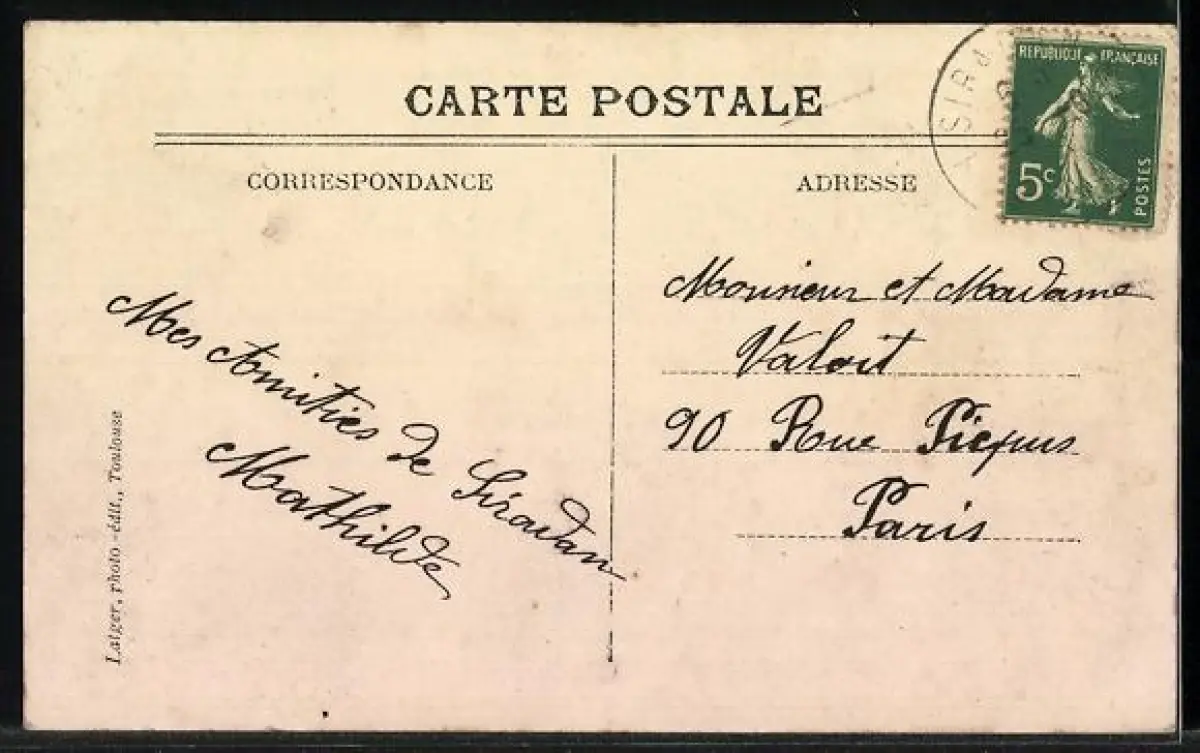 CARTE POSTALE
CORRESPONDANCE
ADRESSE
REPUBLIQUE FRANÇAISE
5c
POSTES
Monsieur et Madame
Valoit
90 Rue Picpus
Paris
Mes Amitiés de Siradan
Mathilde
Latger, photo-édit., Toulouse